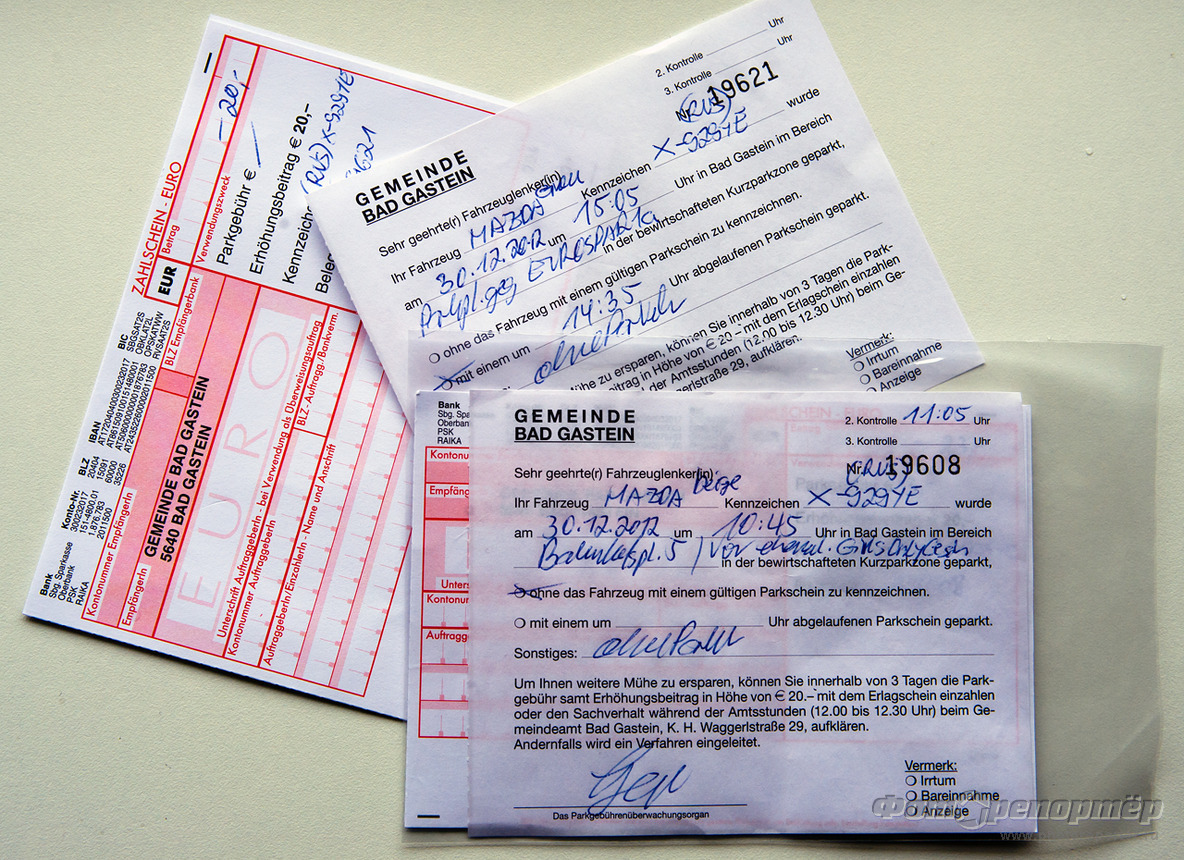 ZAHLSCHEIN - EURO
EUR
Betrag
- 20,-
Verwendungszweck
Parkgebühr €
Erhöhungsbeitrag € 20,–
Kennzeiche
(RUS) X-929YE
Bele
Bank
Sbg. Sparkasse
Oberbank
PSK
RAIKA
Konto-Nr.
30023201
151-4800.01
1.876.783
2011500
BLZ
20404
15091
60000
35226
IBAN
BIC
SBGSAT2S
OBKLAT2L
OPSKATWW
RVSAAT2S
Kontonummer EmpfängerIn
BLZ Empfängerbank
EmpfängerIn
GEMEINDE BAD GASTEIN
5640 BAD GASTEIN
EURO
Unterschrift AuftraggeberIn - bei Verwendung als Überweisungsauftrag
Kontonummer AuftraggeberIn
BLZ-Auftragg./Bankverm.
AuftraggeberIn/EinzahlerIn - Name und Anschrift
2. Kontrolle Uhr
3. Kontrolle Uhr
GEMEINDE
BAD GASTEIN
Nr. 19621
(RUS)
Sehr geehrte(r) Fahrzeuglenker(in)
Ihr Fahrzeug MAZDA Kennzeichen X-929YE wurde
am 30.12.2012 um 15:05 Uhr in Bad Gastein im Bereich
EUROSPAR in der bewirtschafteten Kurzparkzone geparkt,
ohne das Fahrzeug mit einem gültigen Parkschein zu kennzeichnen.
mit einem um 14:35 Uhr abgelaufenen Parkschein geparkt.
Mühe zu ersparen, können Sie innerhalb von 3 Tagen die Park-
beitrag in Höhe von € 20.– mit dem Erlagschein einzahlen
der Amtsstunden (12.00 bis 12.30 Uhr) beim Ge-
straße 29, aufklären.
Vermerk:
Irrtum
Bareinnahme
Anzeige
Bank
Sbg. Spa
Oberbank
PSK
RAIKA
Kontonu
Empfäng
Unters
Kontonur
Auftragg
GEMEINDE
BAD GASTEIN
2. Kontrolle 11:05 Uhr
3. Kontrolle Uhr
Nr. 19608
(RUS)
Sehr geehrte(r) Fahrzeuglenker(in)
Ihr Fahrzeug MAZDA beige Kennzeichen X-929YE wurde
am 30.12.2012 um 10:45 Uhr in Bad Gastein im Bereich
in der bewirtschafteten Kurzparkzone geparkt,
ohne das Fahrzeug mit einem gültigen Parkschein zu kennzeichnen.
mit einem um Uhr abgelaufenen Parkschein geparkt.
Sonstiges:
Um Ihnen weitere Mühe zu ersparen, können Sie innerhalb von 3 Tagen die Park-
gebühr samt Erhöhungsbeitrag in Höhe von € 20.– mit dem Erlagschein einzahlen
oder den Sachverhalt während der Amtsstunden (12.00 bis 12.30 Uhr) beim Ge-
meindeamt Bad Gastein, K. H. Waggerlstraße 29, aufklären.
Andernfalls wird ein Verfahren eingeleitet.
Das Parkgebührenüberwachungsorgan
Vermerk:
Irrtum
Bareinnahme
Anzeige
Фоторепортёр